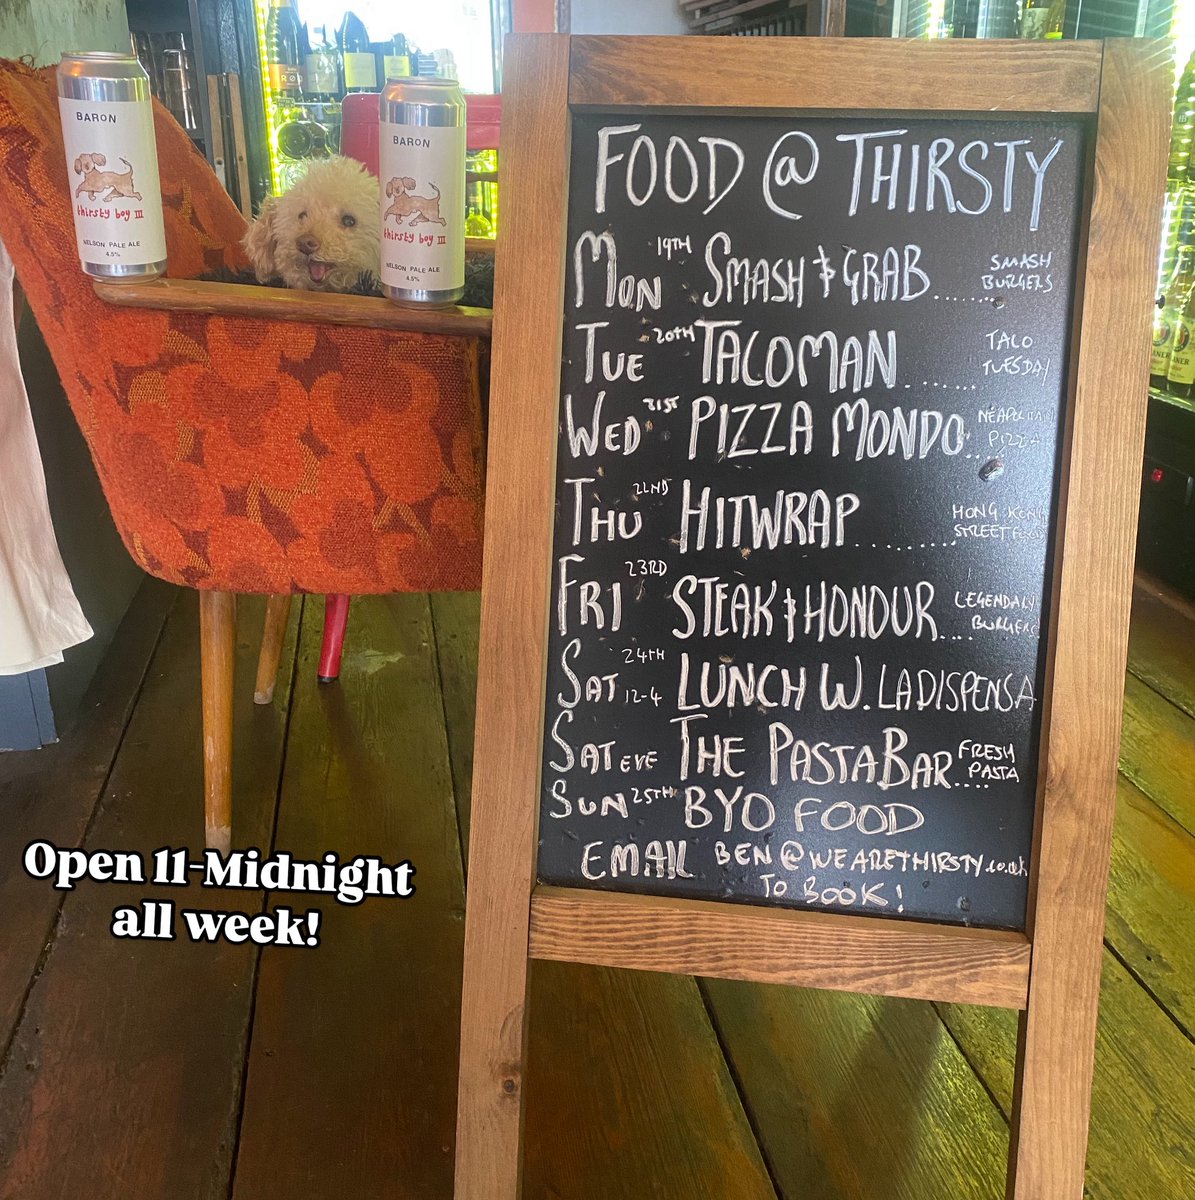 BARON
thirsty boy III
NELSON PALE ALE
4.5%
BARON
thirsty boy III
NELSON PALE ALE
4.5%
FOOD @ THIRSTY
MON 19TH SMASH & GRAB....... SMASH BURGERS
TUE 20TH TACOMAN....... TACO TUESDAY
WED 21ST PIZZA MONDO.... NEAPOLITAN PIZZA
THU 22ND HITWRAP.......... HONG KONG STREET FOOD
FRI 23RD STEAK & HONOUR.... LEGENDARY BURGERS
SAT 24TH 12-4 LUNCH W. LADISPENSA
SAT EVE THE PASTA BAR.... FRESH PASTA
SUN 25TH BYO FOOD
EMAIL BEN@WEARETHIRSTY.co.uk
TO BOOK!
Open 11-Midnight
all week!